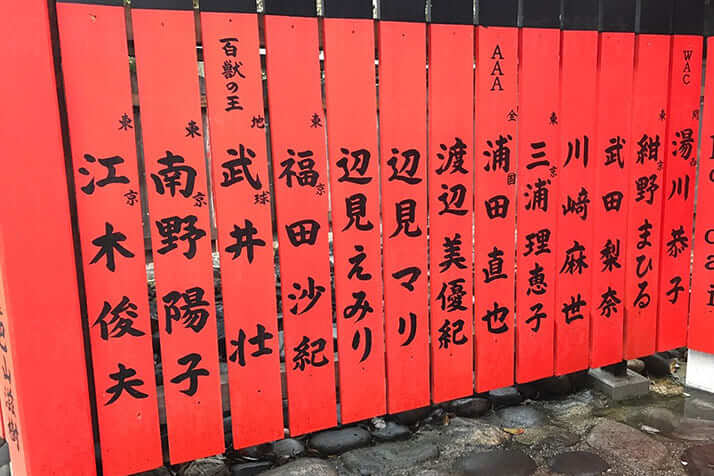 WAC
関西
湯川恭子
東京
紺野まひる
武田梨奈
川﨑麻世
東京
三浦理恵子
AAA
全国
浦田直也
渡辺美優紀
辺見マリ
辺見えみり
東京
福田沙紀
百獣の王
地球
武井壮
東京
南野陽子
東京
江木俊夫